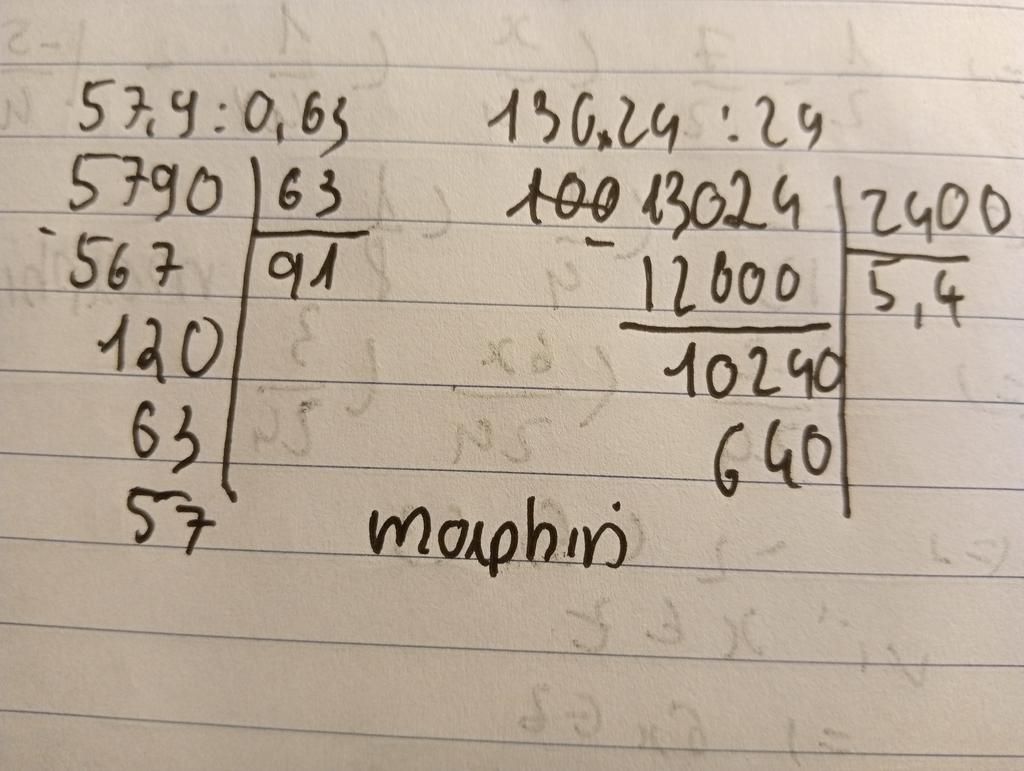 57,9 : 0,63 130.24 : 24
5790 63 100 13024 2400
- 567 91 - 12000 5,4
120 10240
63 640
57 morphin